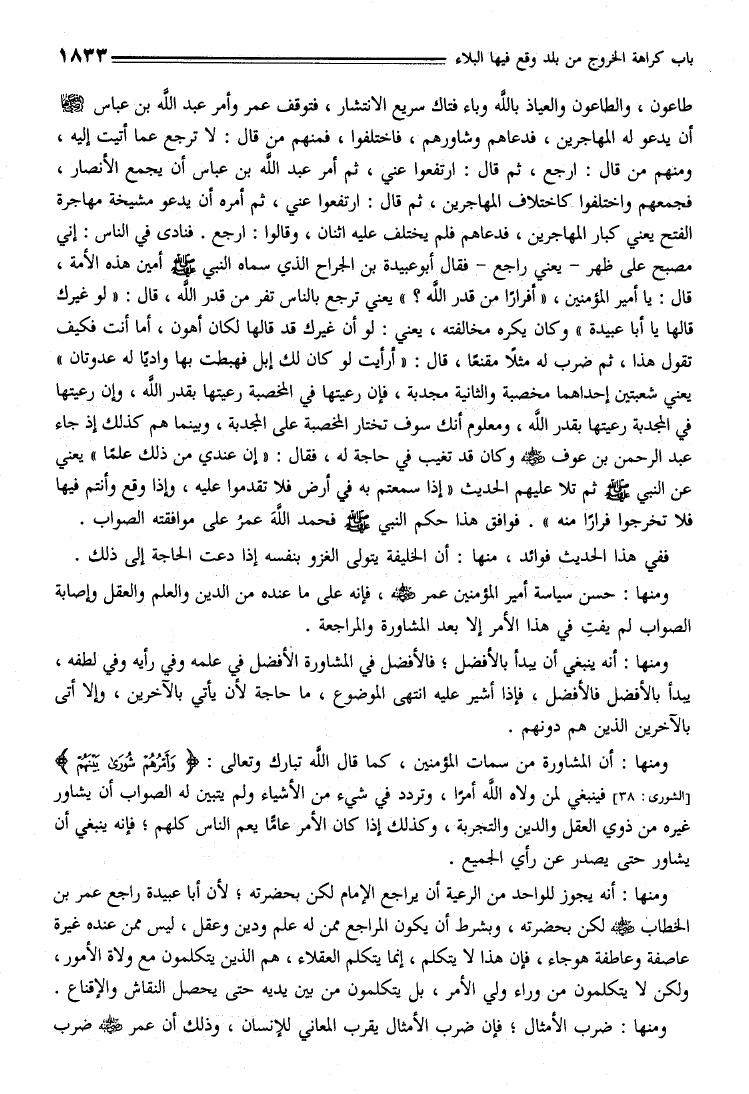 باب كراهة الخروج من بلد وقع فيها البلاء ١٨٣٣
طاعون ، والطاعون والعياذ باللَّه وباء فتاك سريع الانتشار ، فتوقف عمر وأمر عبد اللَّه بن عباس ﵄
أن يدعو له المهاجرين ، فدعاهم وشاورهم ، فاختلفوا ، فمنهم من قال : لا ترجع عما أتيت إليه ،
ومنهم من قال : ارجع ، ثم قال : ارتفعوا عني ، ثم أمر عبد اللَّه بن عباس أن يجمع الأنصار ،
فجمعهم واختلفوا كاختلاف المهاجرين ، ثم قال : ارتفعوا عني ، ثم أمره أن يدعو مشيخة مهاجرة
الفتح يعني كبار المهاجرين ، فدعاهم فلم يختلف عليه اثنان ، وقالوا : ارجع . فنادى في الناس : إني
مصبح على ظهر - يعني راجع - فقال أبوعبيدة بن الجراح الذي سماه النبي ﷺ أمين هذه الأمة ،
قال : يا أمير المؤمنين ، « أفرارًا من قدر اللَّه ؟ » يعني ترجع بالناس تفر من قدر اللَّه ، قال : « لو غيرك
قالها يا أبا عبيدة » وكان يكره مخالفته ، يعني : لو أن غيرك قد قالها لكان أهون ، أما أنت فكيف
تقول هذا ، ثم ضرب له مثلًا مقنعًا ، قال : « أرأيت لو كان لك إبل فهبطت بها واديًا له عدوتان »
يعني شعبتين إحداهما مخصبة والثانية مجدبة ، فإن رعيتها في المخصبة رعيتها بقدر اللَّه ، وإن رعيتها
في المجدبة رعيتها بقدر اللَّه ، ومعلوم أنك سوف تختار المخصبة على المجدبة ، وبينما هم كذلك إذ جاء
عبد الرحمن بن عوف ﵁ وكان قد تغيب في حاجة له ، فقال : « إن عندي من ذلك علمًا » يعني
عن النبي ﷺ ثم تلا عليهم الحديث « إذا سمعتم به في أرض فلا تقدموا عليه ، وإذا وقع وأنتم فيها
فلا تخرجوا فرارًا منه » . فوافق هذا حكم النبي ﷺ فحمد اللَّهَ عمرُ على موافقته الصواب .
ففي هذا الحديث فوائد ، منها : أن الخليفة يتولى الغزو بنفسه إذا دعت الحاجة إلى ذلك .
ومنها : حسن سياسة أمير المؤمنين عمر ﵁ ، فإنه على ما عنده من الدين والعلم والعقل وإصابة
الصواب لم يفتِ في هذا الأمر إلا بعد المشاورة والمراجعة .
ومنها : أنه ينبغي أن يبدأ بالأفضل ؛ فالأفضل في المشاورة الأفضل في علمه وفي رأيه وفي لطفه ،
يبدأ بالأفضل فالأفضل ، فإذا أشير عليه انتهى الموضوع ، ما حاجة لأن يأتي بالآخرين ، وإلا أتى
بالآخرين الذين هم دونهم .
ومنها : أن المشاورة من سمات المؤمنين ، كما قال اللَّه تبارك وتعالى : ﴿ وَأَمْرُهُمْ شُورَىٰ بَيْنَهُمْ ﴾
[الشورى: ٣٨] فينبغي لمن ولاه اللَّه أمرًا ، وتردد في شيء من الأشياء ولم يتبين له الصواب أن يشاور
غيره من ذوي العقل والدين والتجربة ، وكذلك إذا كان الأمر عامًّا يعم الناس كلهم ؛ فإنه ينبغي أن
يشاور حتى يصدر عن رأي الجميع .
ومنها : أنه يجوز للواحد من الرعية أن يراجع الإمام لكن بحضرته ؛ لأن أبا عبيدة راجع عمر بن
الخطاب ﵁ لكن بحضرته ، وبشرط أن يكون المراجع ممن له علم ودين وعقل ، ليس ممن عنده غيرة
عاصفة وعاطفة هوجاء ، فإن هذا لا يتكلم ، إنما يتكلم العقلاء ، هم الذين يتكلمون مع ولاة الأمور ،
ولكن لا يتكلمون من وراء ولي الأمر ، بل يتكلمون من بين يديه حتى يحصل النقاش والإقناع .
ومنها : ضرب الأمثال ؛ فإن ضرب الأمثال يقرب المعاني للإنسان ، وذلك أن عمر ﵁ ضرب